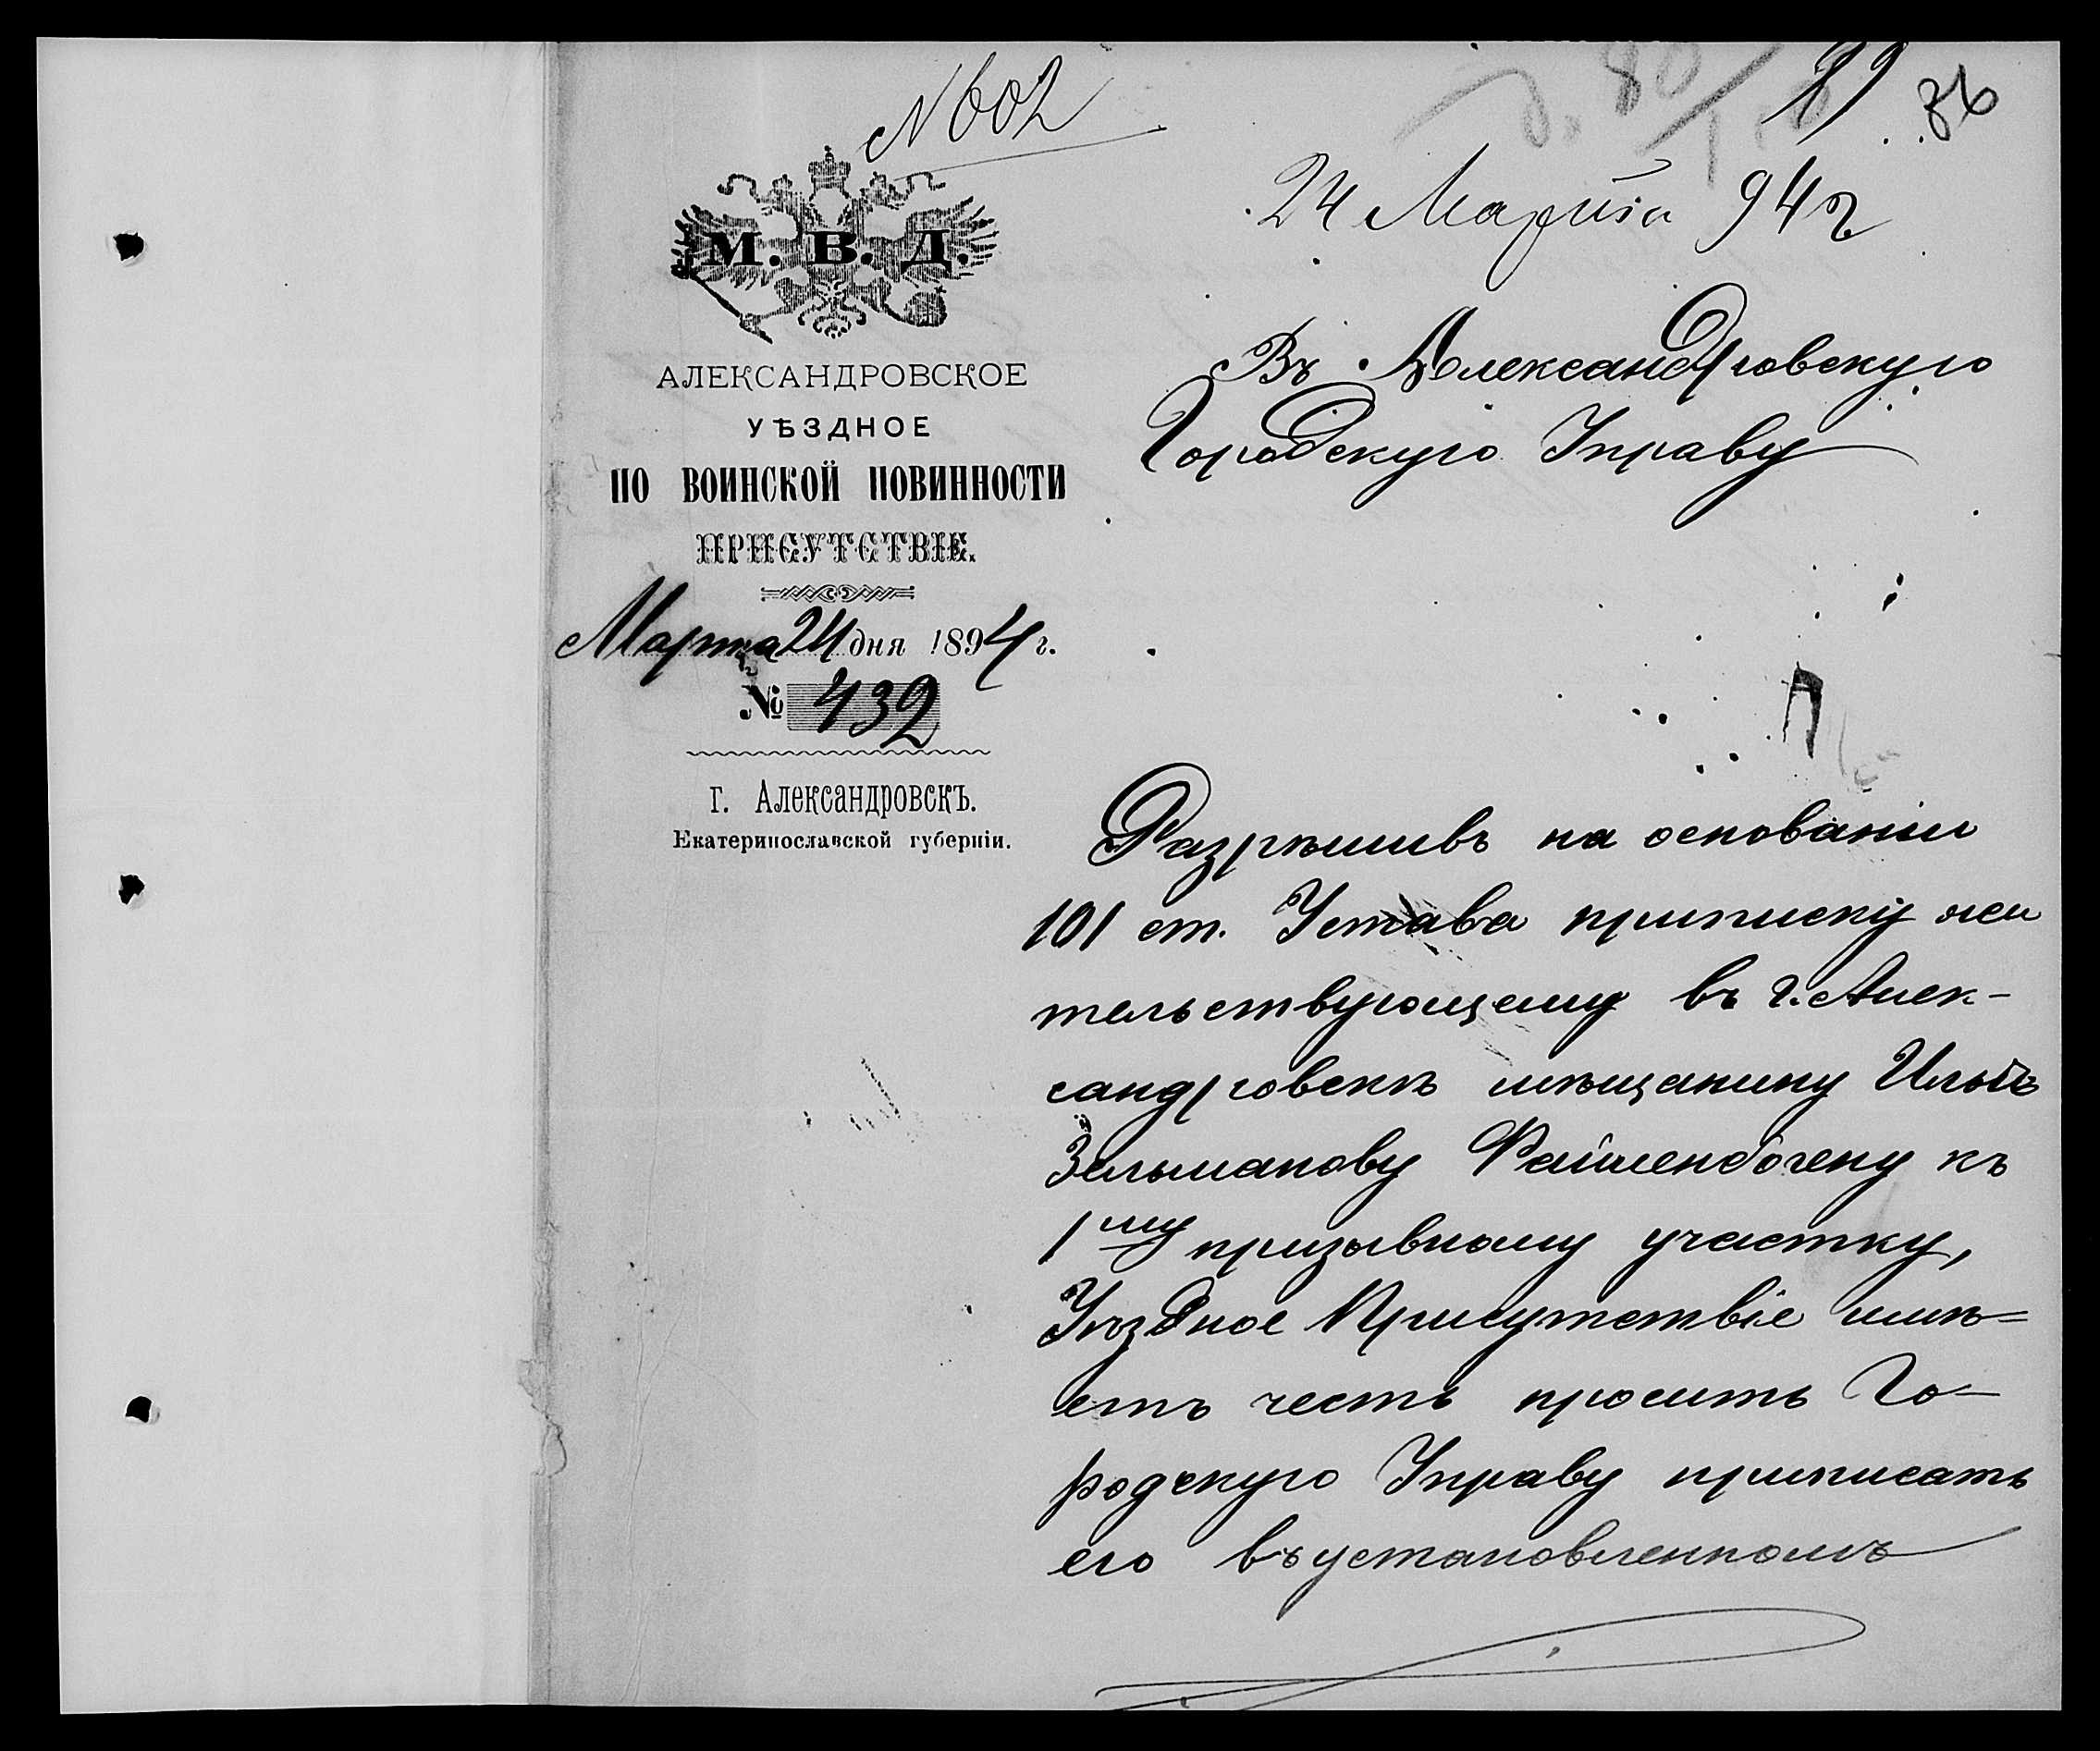 N 602
89
86
24 Марта 94 г
М. В. Д.
АЛЕКСАНДРОВСКОЕ
УѢЗДНОЕ
ПО ВОИНСКОЙ ПОВИННОСТИ
ПРИСУТСТВІЕ.
Марта 24 дня 1894 г.
№ 432
г. Александровскъ.
Екатеринославской губерніи.
Въ Александровскую
Городскую Управу
Разрѣшивъ на основаніи
101 ст. Устава приписку жи
тельствующему въ г. Алек-
сандровскѣ мѣщанину Ильѣ
Зельманову Файшенбогену къ
1му призывному участку,
Уѣздное Присутствіе имѣ=
етъ честь просить Го-
родскую Управу приписать
его въ установленномъ